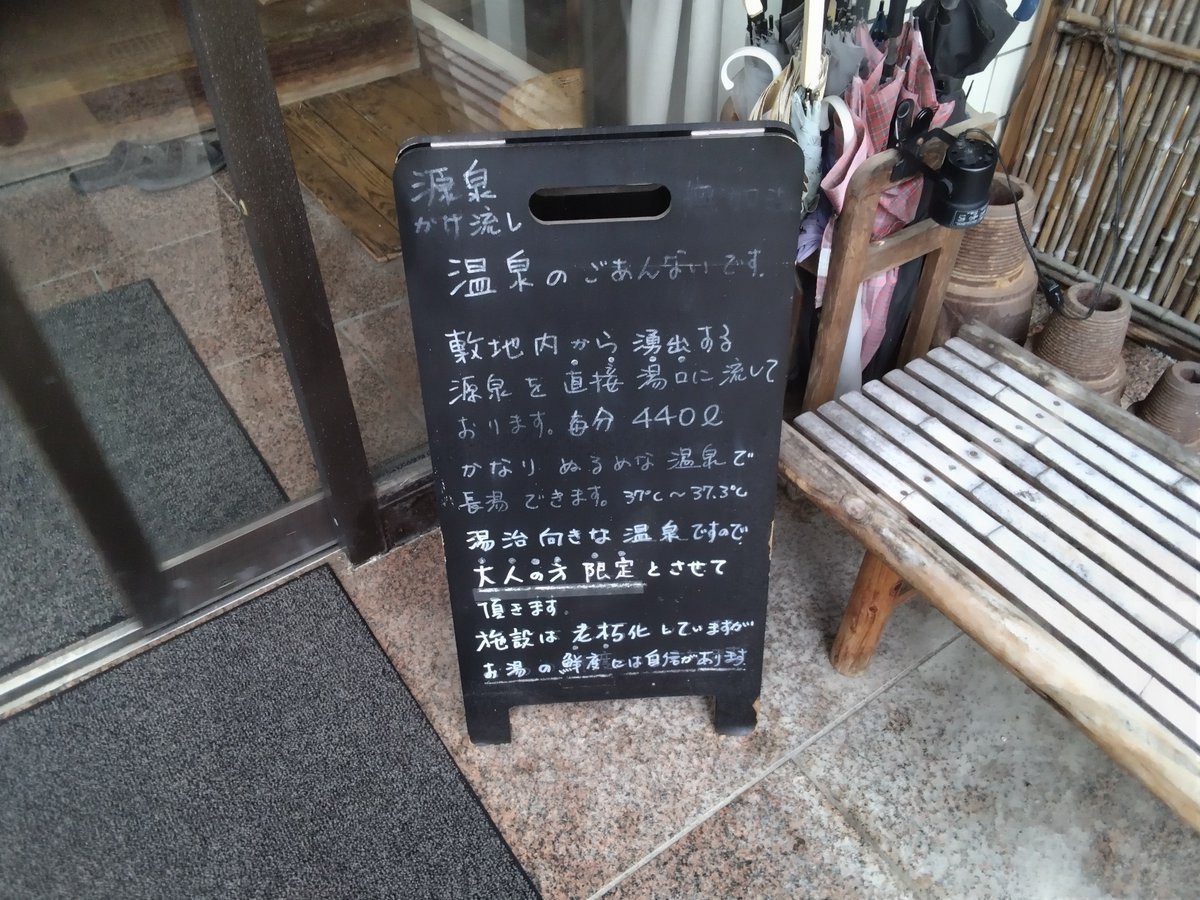 源泉
かけ流し
温泉のごあんないです。
敷地内から湧出する
源泉を直接湯口に流して
おります。毎分440ℓ
かなりぬるめな温泉で
長湯できます。37℃〜37.3℃
湯治向きな温泉ですので
大人の方限定とさせて
頂きます。
施設は老朽化していますが
お湯の鮮度には自信があります